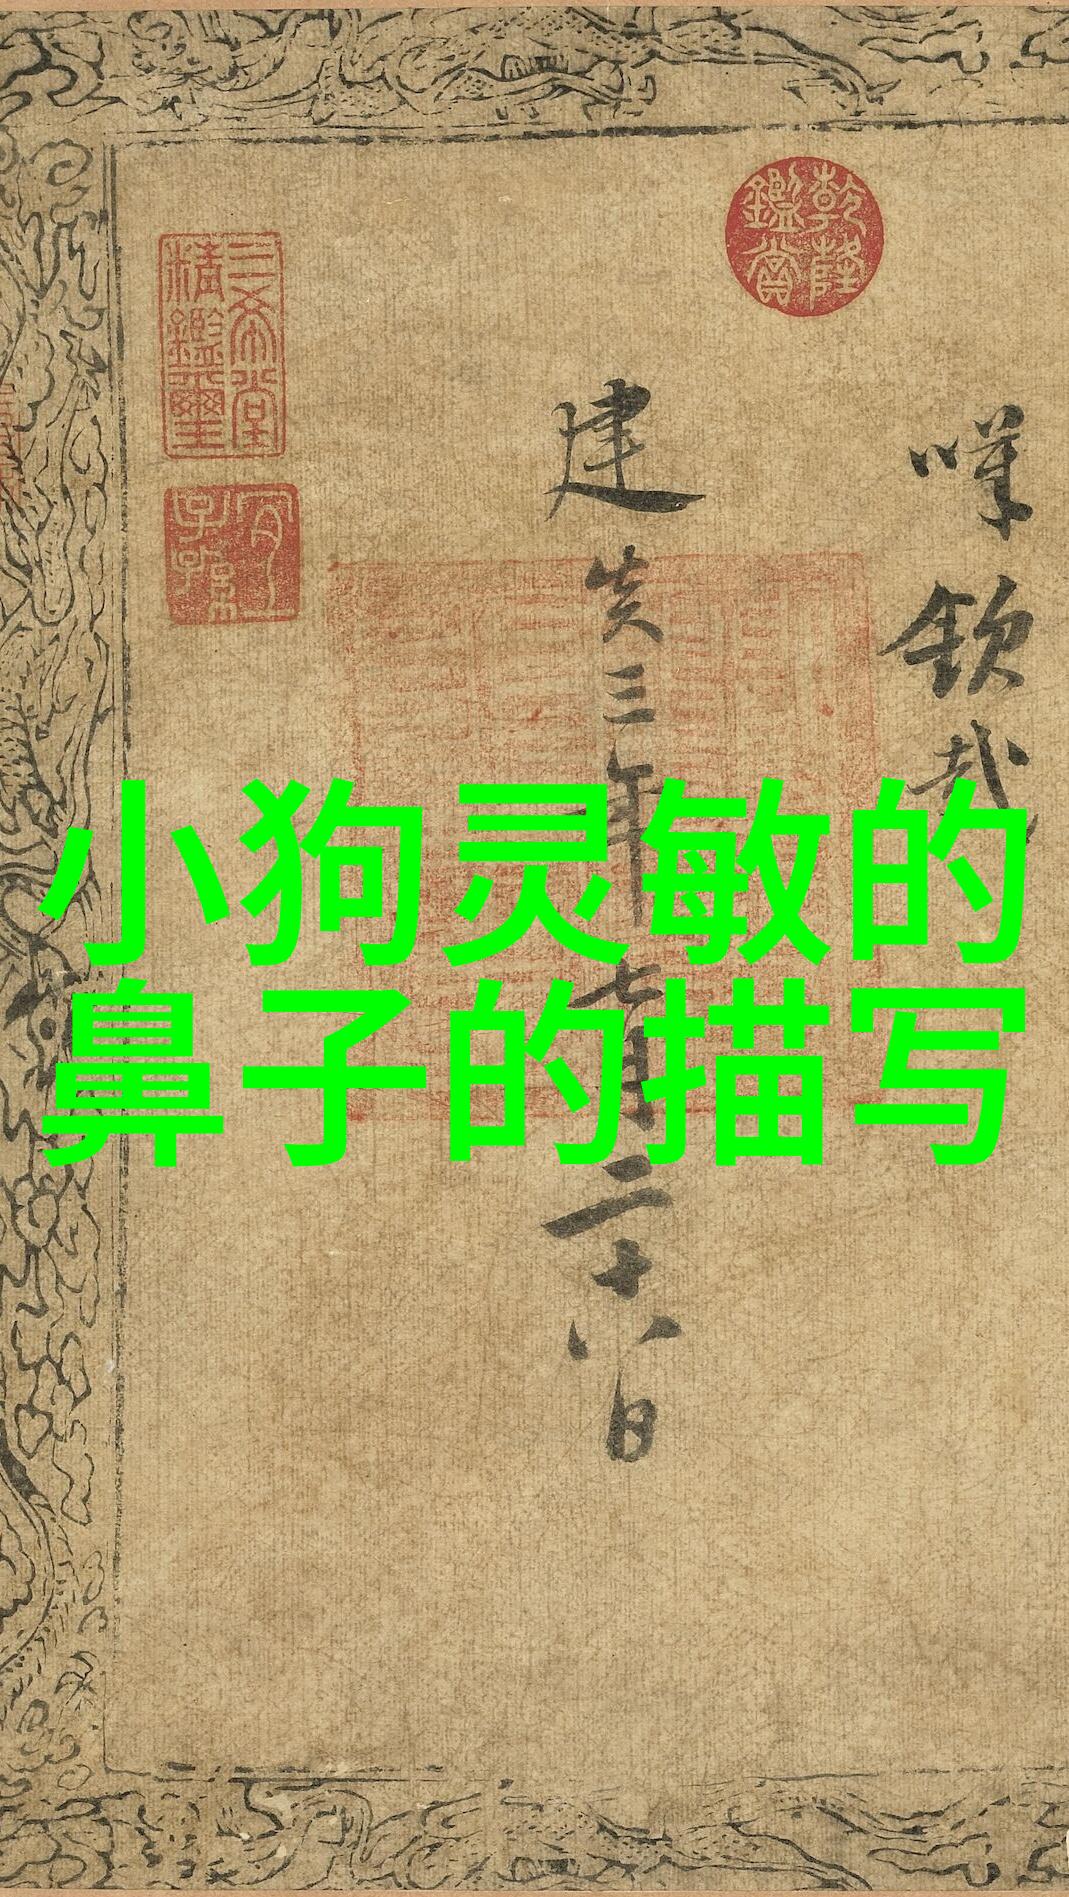 乾隆
鑑賞
三希堂
精鑑璽
宜
子孫
嘆欽哉
建炎三年七月二十八日
小狗灵敏的
鼻子的描写